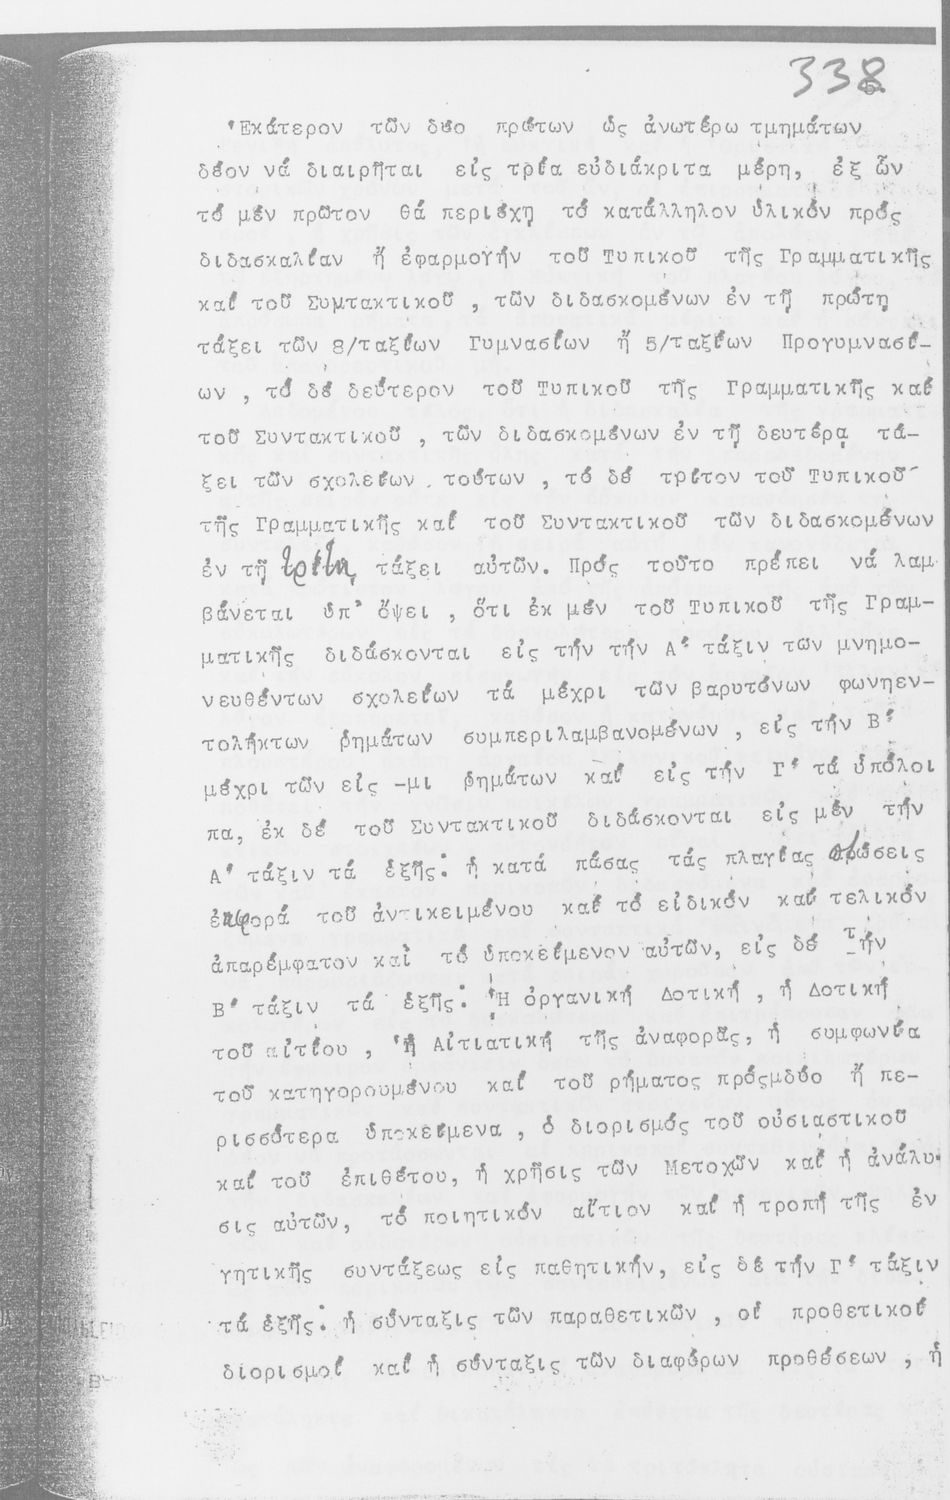 338
Ἑκάτερον τῶν δύο πρώτων ὡς ἀνωτέρω τμημάτων
δέον νά διαιρῆται εἰς τρία εὐδιάκριτα μέρη, ἐξ ὧν
τό μέν πρῶτον θά περιέχῃ τό κατάλληλον ὑλικόν πρός
διδασκαλίαν ἤ ἐφαρμογήν τοῦ Τυπικοῦ τῆς Γραμματικῆς
καί τοῦ Συμτακτικοῦ , τῶν διδασκομένων ἐν τῇ πρώτῃ
τάξει τῶν 8/ταξίων Γυμνασίων ἤ 5/ταξίων Προγυμνασί-
ων , τό δέ δεύτερον τοῦ Τυπικοῦ τῆς Γραμματικῆς καί
τοῦ Συντακτικοῦ , τῶν διδασκομένων ἐν τῇ δευτέρᾳ τά-
ξει τῶν σχολείων τούτων , τό δέ τρίτον τοῦ Τυπικοῦ
τῆς Γραμματικῆς καί τοῦ Συντακτικοῦ τῶν διδασκομένων
ἐν τῇ τρίτῃ τάξει αὐτῶν. Πρός τοῦτο πρέπει νά λαμ
βάνεται ὑπ' ὄψει , ὅτι ἐκ μέν τοῦ Τυπικοῦ τῆς Γραμ-
ματικῆς διδάσκονται εἰς τήν τήν Α' τάξιν των μνημο-
νευθέντων σχολείων τά μέχρι τῶν βαρυτόνων φωνηεν-
τολήκτων ῥημάτων συμπεριλαμβανομένων , εἰς τήν Β'
μέχρι τῶν εἰς -μι ῥημάτων καί εἰς τήν Γ' τά ὑπόλοι
πα, ἐκ δέ τοῦ Συντακτικοῦ διδάσκονται εἰς μέν τήν
Α' τάξιν τά ἑξῆς: ἡ κατά πάσας τάς πλαγίας πτώσεις
ἐκφορά τοῦ ἀντικειμένου καί τό εἰδικόν καί τελικόν
ἀπαρέμφατον καὶ τό ὑποκείμενον αὐτῶν, εἰς δέ τήν
Β' τάξιν τά ἑξῆς: Ἡ ὀργανική Δοτική , ἡ Δοτική
τοῦ αἰτίου , Ἡ Αἰτιατική τῆς ἀναφορᾶς, ἡ συμφωνία
τοῦ κατηγορουμένου καί τοῦ ρήματος πρόςμδύο ἤ πε-
ρισσότερα ὑποκείμενα , ὁ διορισμός τοῦ οὐσιαστικοῦ
καί τοῦ ἐπιθέτου, ἡ χρῆσις τῶν Μετοχῶν καί ἡ ἀνάλυ-
σις αὐτῶν, τό ποιητικόν αἴτιον καί ἡ τροπή τῆς ἐν
γητικῆς συντάξεως εἰς παθητικήν, εἰς δέ τήν Γ' τάξιν
τά ἑξῆς: ἡ σύνταξις τῶν παραθετικῶν , οἱ προθετικοί
διορισμοί καί ἡ σύνταξις τῶν διαφόρων προθέσεων , ἡ